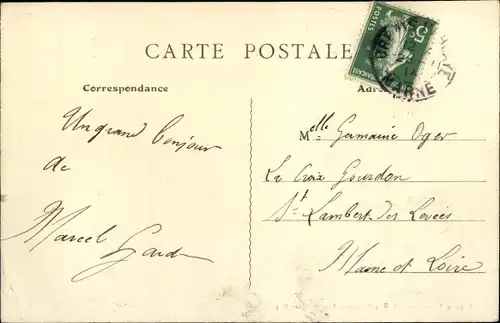 CARTE POSTALE
Correspondance
Un grand bonjour
de
Marcel
Adre
Melle Germaine Oger
La Croix Gourdon
St Lambert des Levées
Maine et Loire
5c
POSTES
MARNE